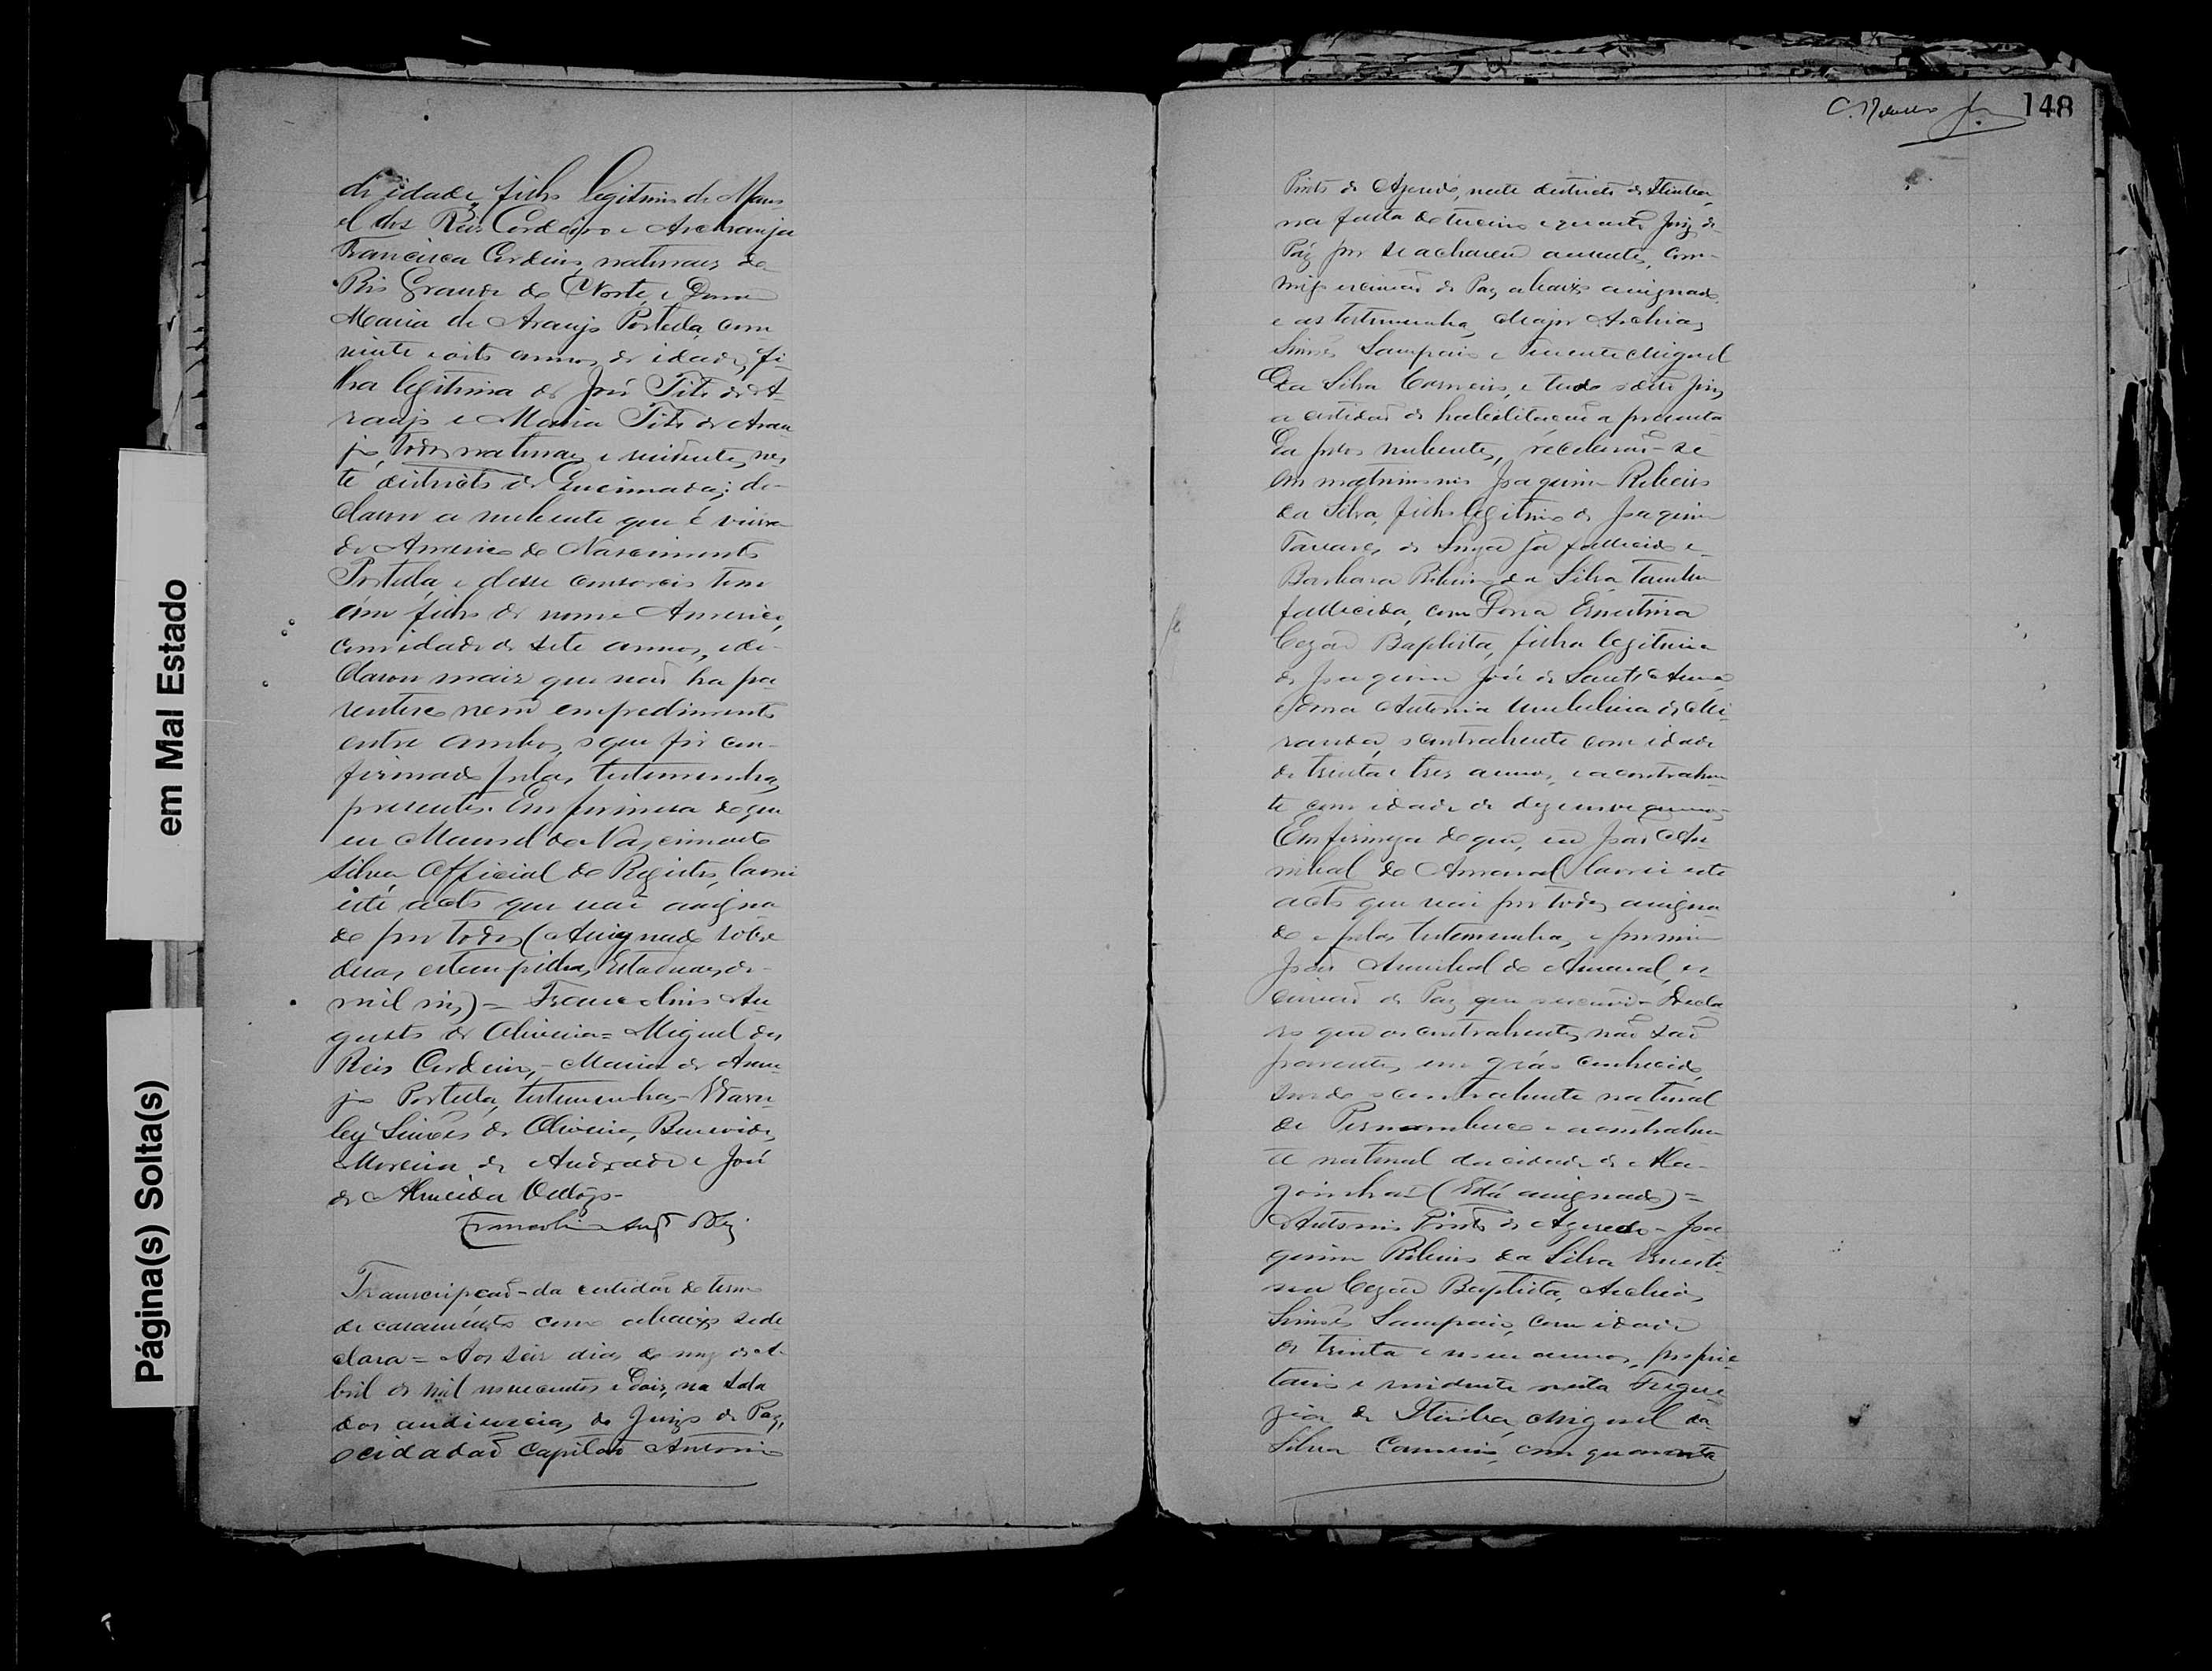 de idade, filho legitimo de Mano
el dos Reis Cordeiro e Archanja
Francisca Cordeiro, naturaes do
Rio Grande do Norte, e Dona
Maria de Araujo Portella, com
vinte e oito annos de idade, fi-
lha legitima de José Tito de A-
raujo e Maria Tito de Arau-
jo, todos naturaes e residentes nes
te districto de Queimadas; de-
clarou a nubente que é viuva
de Americo do Nascimento
Portella, e desse consorcio tem
um filho de nome Americo,
com idade de sete annos, e de-
clarou mais que não ha pa-
rentesco nem empedimento
entre ambos, o que foi con-
firmado pelas testemunhas
presentes. Em firmesa do que
eu Manoel do Nascimento
Silva Official do Registro, lavrei
este acto que vai assigna
do por todos (Assignado sobre
duas estampilhas Estadoaes de
mil reis) = Francolino Au
gusto de Oliveira = Miguel dos
Reis Cordeiro, - Maria de Arau
jo Portella, testemunhas -
ley Simões de Oliveira, Benevides
Moreira de Andrade e José
de Almeida
Transcripção - da certidão do termo
de casamento como abaixo se de
clara = Aos seis dias do mez de A-
bril de mil novecentos e dois, na sala
das audiencias do Juizo de Paz,
o cidadão capitão Antonio
148
Pinto de Azeredo, neste districto de Itiuba,
na falta do terceiro e quarto Juiz de
Paz por se acharem ausentes, com-
migo escrivão de Paz abaixo assignado
e as testemunhas, Major Archias
Simões Sampaio e Tenente Miguel
da Silva Carneiro, e tudo sobre
a certidão de habilitação apresenta
da pelos nubentes, receberão-se
em matrimonio Joaquim Ribeiro
da Silva, filho legitimo de Joaquim
Tavares de Souza já fallecido e
Barbara Ribeiro da Silva, tambem
fallecida, com Dona Ernestina
Cezar Baptista, filha legitima
de Joaquim José de Sant'Anna
e Dona Antonia Umbelina de Mi-
randa, o contrahente com idade
de trinta e tres annos, e a contrahen
te com idade de dezenove annos
Em firmeza do que, eu João An-
nibal do Amaral lavrei este
acto que vai por todos assigna-
do e pelas testemunhas, e por mim
João Annibal do Amaral, es
crivão de Paz que escrevi - Decla
ro que os contrahentes não são
parentes em gráo conhecido,
sendo o contrahente natural
de Pernambuco e a contrahen
te natural da cidade de Ala-
goinhas (Está assignado) =
Antonio Pinto de Azeredo - Joa
quim Ribeiro da Silva Ernesti
na Cezar Baptista, Archias
Simões Sampaio, com idade
de trinta e nove annos, proprie
tario e residente nesta Fregue
zia de Itiuba, Miguel da
Silva Carneiro, com quarenta
em Mal Estado
Página(s) Solta(s)